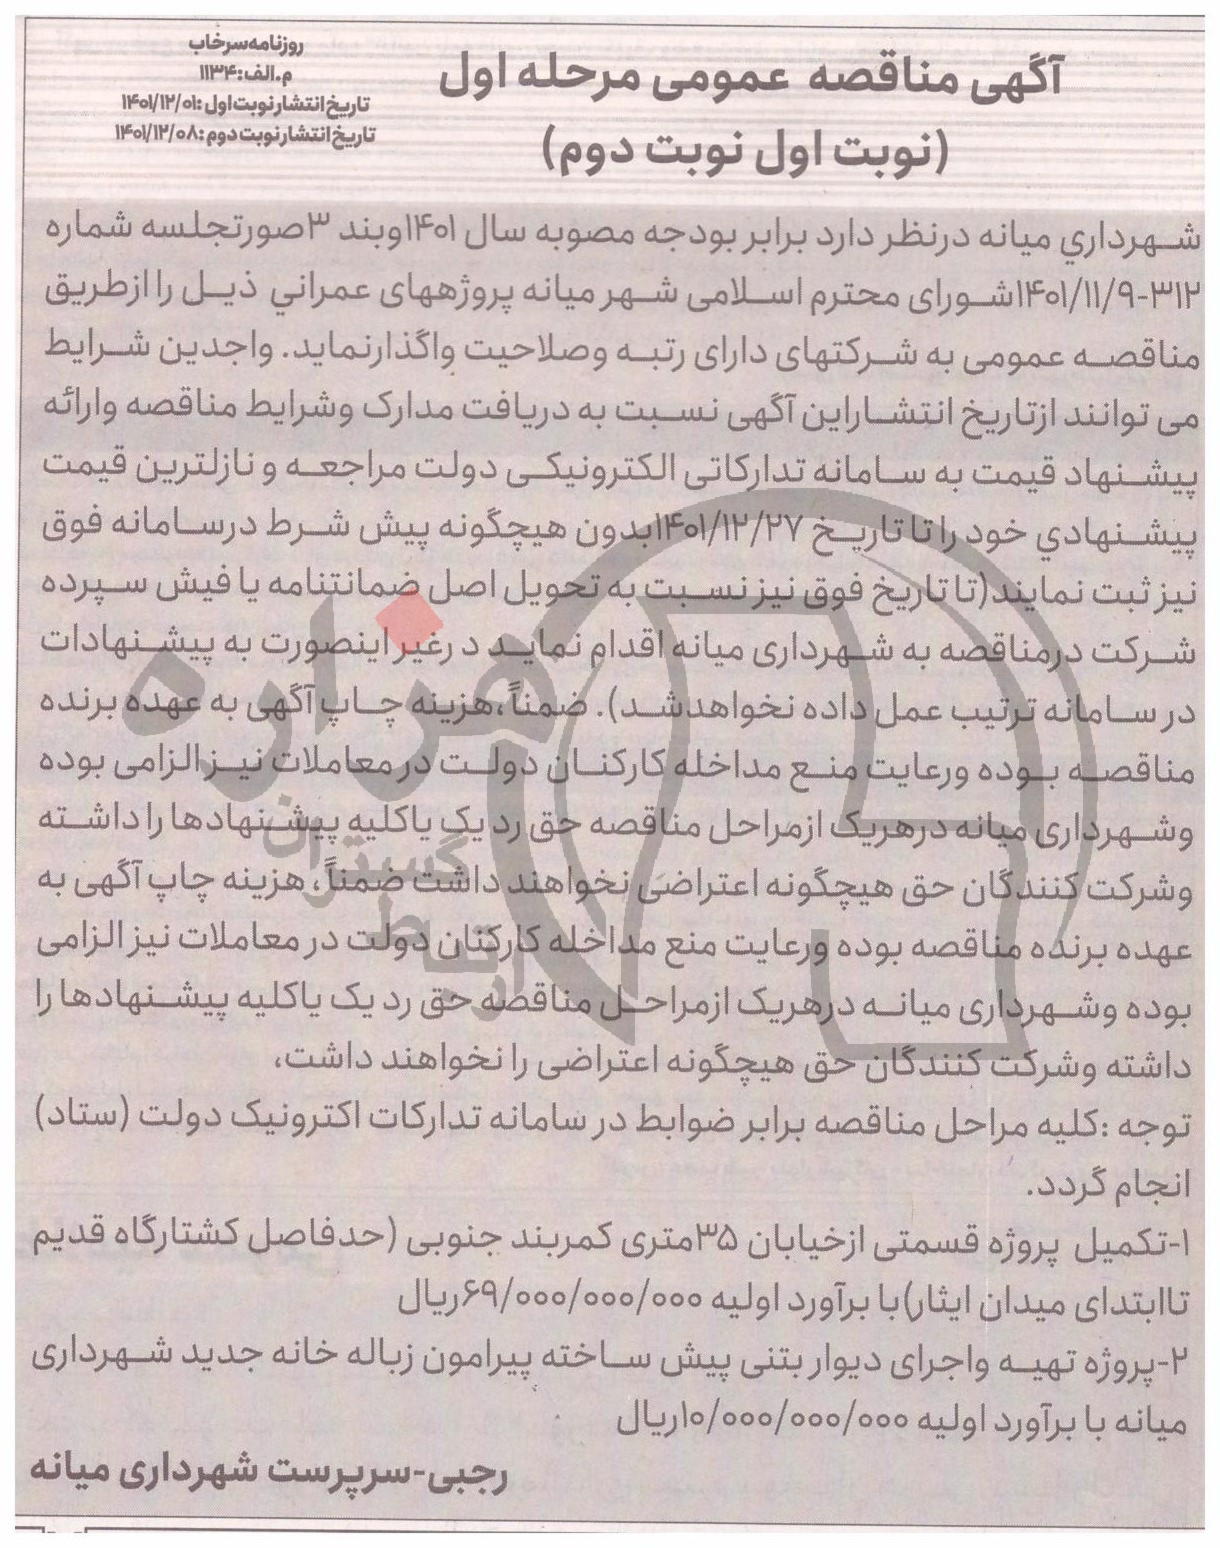 روزنامه سرخاب
م.الف:۱۱۳۴
تاریخ انتشار نوبت اول:۱۴۰۱/۱۲/۰۱
تاریخ انتشار نوبت دوم:۱۴۰۱/۱۲/۰۸
آگهی مناقصه عمومی مرحله اول
(نوبت اول نوبت دوم)
شهرداري میانه درنظر دارد برابر بودجه مصوبه سال ۱۴۰۱وبند ۳صورتجلسه شماره
۳۱۲-۱۴۰۱/۱۱/۹شورای محترم اسلامی شهر میانه پروژههای عمراني ذیل را ازطریق
مناقصه عمومی به شرکتهای دارای رتبه وصلاحیت واگذارنماید. واجدین شرایط
می توانند ازتاریخ انتشاراین آگهی نسبت به دریافت مدارک وشرایط مناقصه وارائه
پیشنهاد قیمت به سامانه تدارکاتی الکترونیکی دولت مراجعه و نازلترین قیمت
پیشنهادي خود را تا تاریخ ۱۴۰۱/۱۲/۲۷بدون هیچگونه پیش شرط درسامانه فوق
نیز ثبت نمایند(تا تاریخ فوق نیز نسبت به تحویل اصل ضمانتنامه یا فیش سپرده
شرکت درمناقصه به شهرداری میانه اقدام نماید د رغیر اینصورت به پیشنهادات
در سامانه ترتیب عمل داده نخواهدشد). ضمناً،هزینه چاپ آگهی به عهده برنده
مناقصه بوده ورعایت منع مداخله کارکنان دولت در معاملات نیز الزامی بوده
وشهرداری میانه درهریک ازمراحل مناقصه حق رد یک یاکلیه پیشنهادها را داشته
وشرکت کنندگان حق هیچگونه اعتراضی نخواهند داشت ضمناً، هزینه چاپ آگهی به
عهده برنده مناقصه بوده ورعایت منع مداخله کارکنان دولت در معاملات نیز الزامی
بوده وشهرداری میانه درهریک ازمراحل مناقصه حق رد یک یاکلیه پیشنهادها را
داشته وشرکت کنندگان حق هیچگونه اعتراضی را نخواهند داشت،
توجه :کلیه مراحل مناقصه برابر ضوابط در سامانه تدارکات اکترونیک دولت (ستاد)
انجام گردد.
۱-تکمیل پروژه قسمتی ازخیابان ۳۵متری کمربند جنوبی (حدفاصل کشتارگاه قدیم
تاابتدای میدان ایثار)با برآورد اولیه ۶۹/۰۰۰/۰۰۰/۰۰۰ریال
۲-پروژه تهیه واجرای دیوار بتنی پیش ساخته پیرامون زباله خانه جدید شهرداری
میانه با برآورد اولیه ۱۰/۰۰۰/۰۰۰/۰۰۰ریال
رجبی-سرپرست شهرداری میانه
هزاره